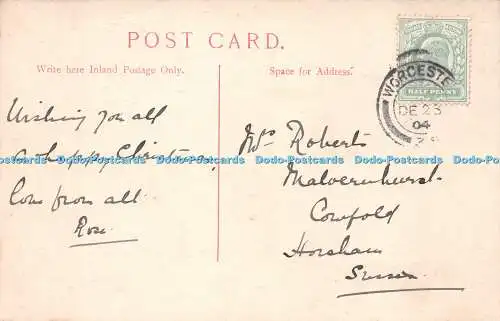 POST CARD.
Write here Inland Postage Only.
Space for Address.
HALF PENNY
WORCESTE
DE 23
04
Wishing you all
a happy Christmas
Love from all.
Rose
Mrs Roberts
Malvernhurst
Cowfold
Horsham
Sussex
Dodo-Postcards Dodo-Postcards Dodo-Postcards Dodo-Postcards Dodo-Postcards Dodo-Postcards